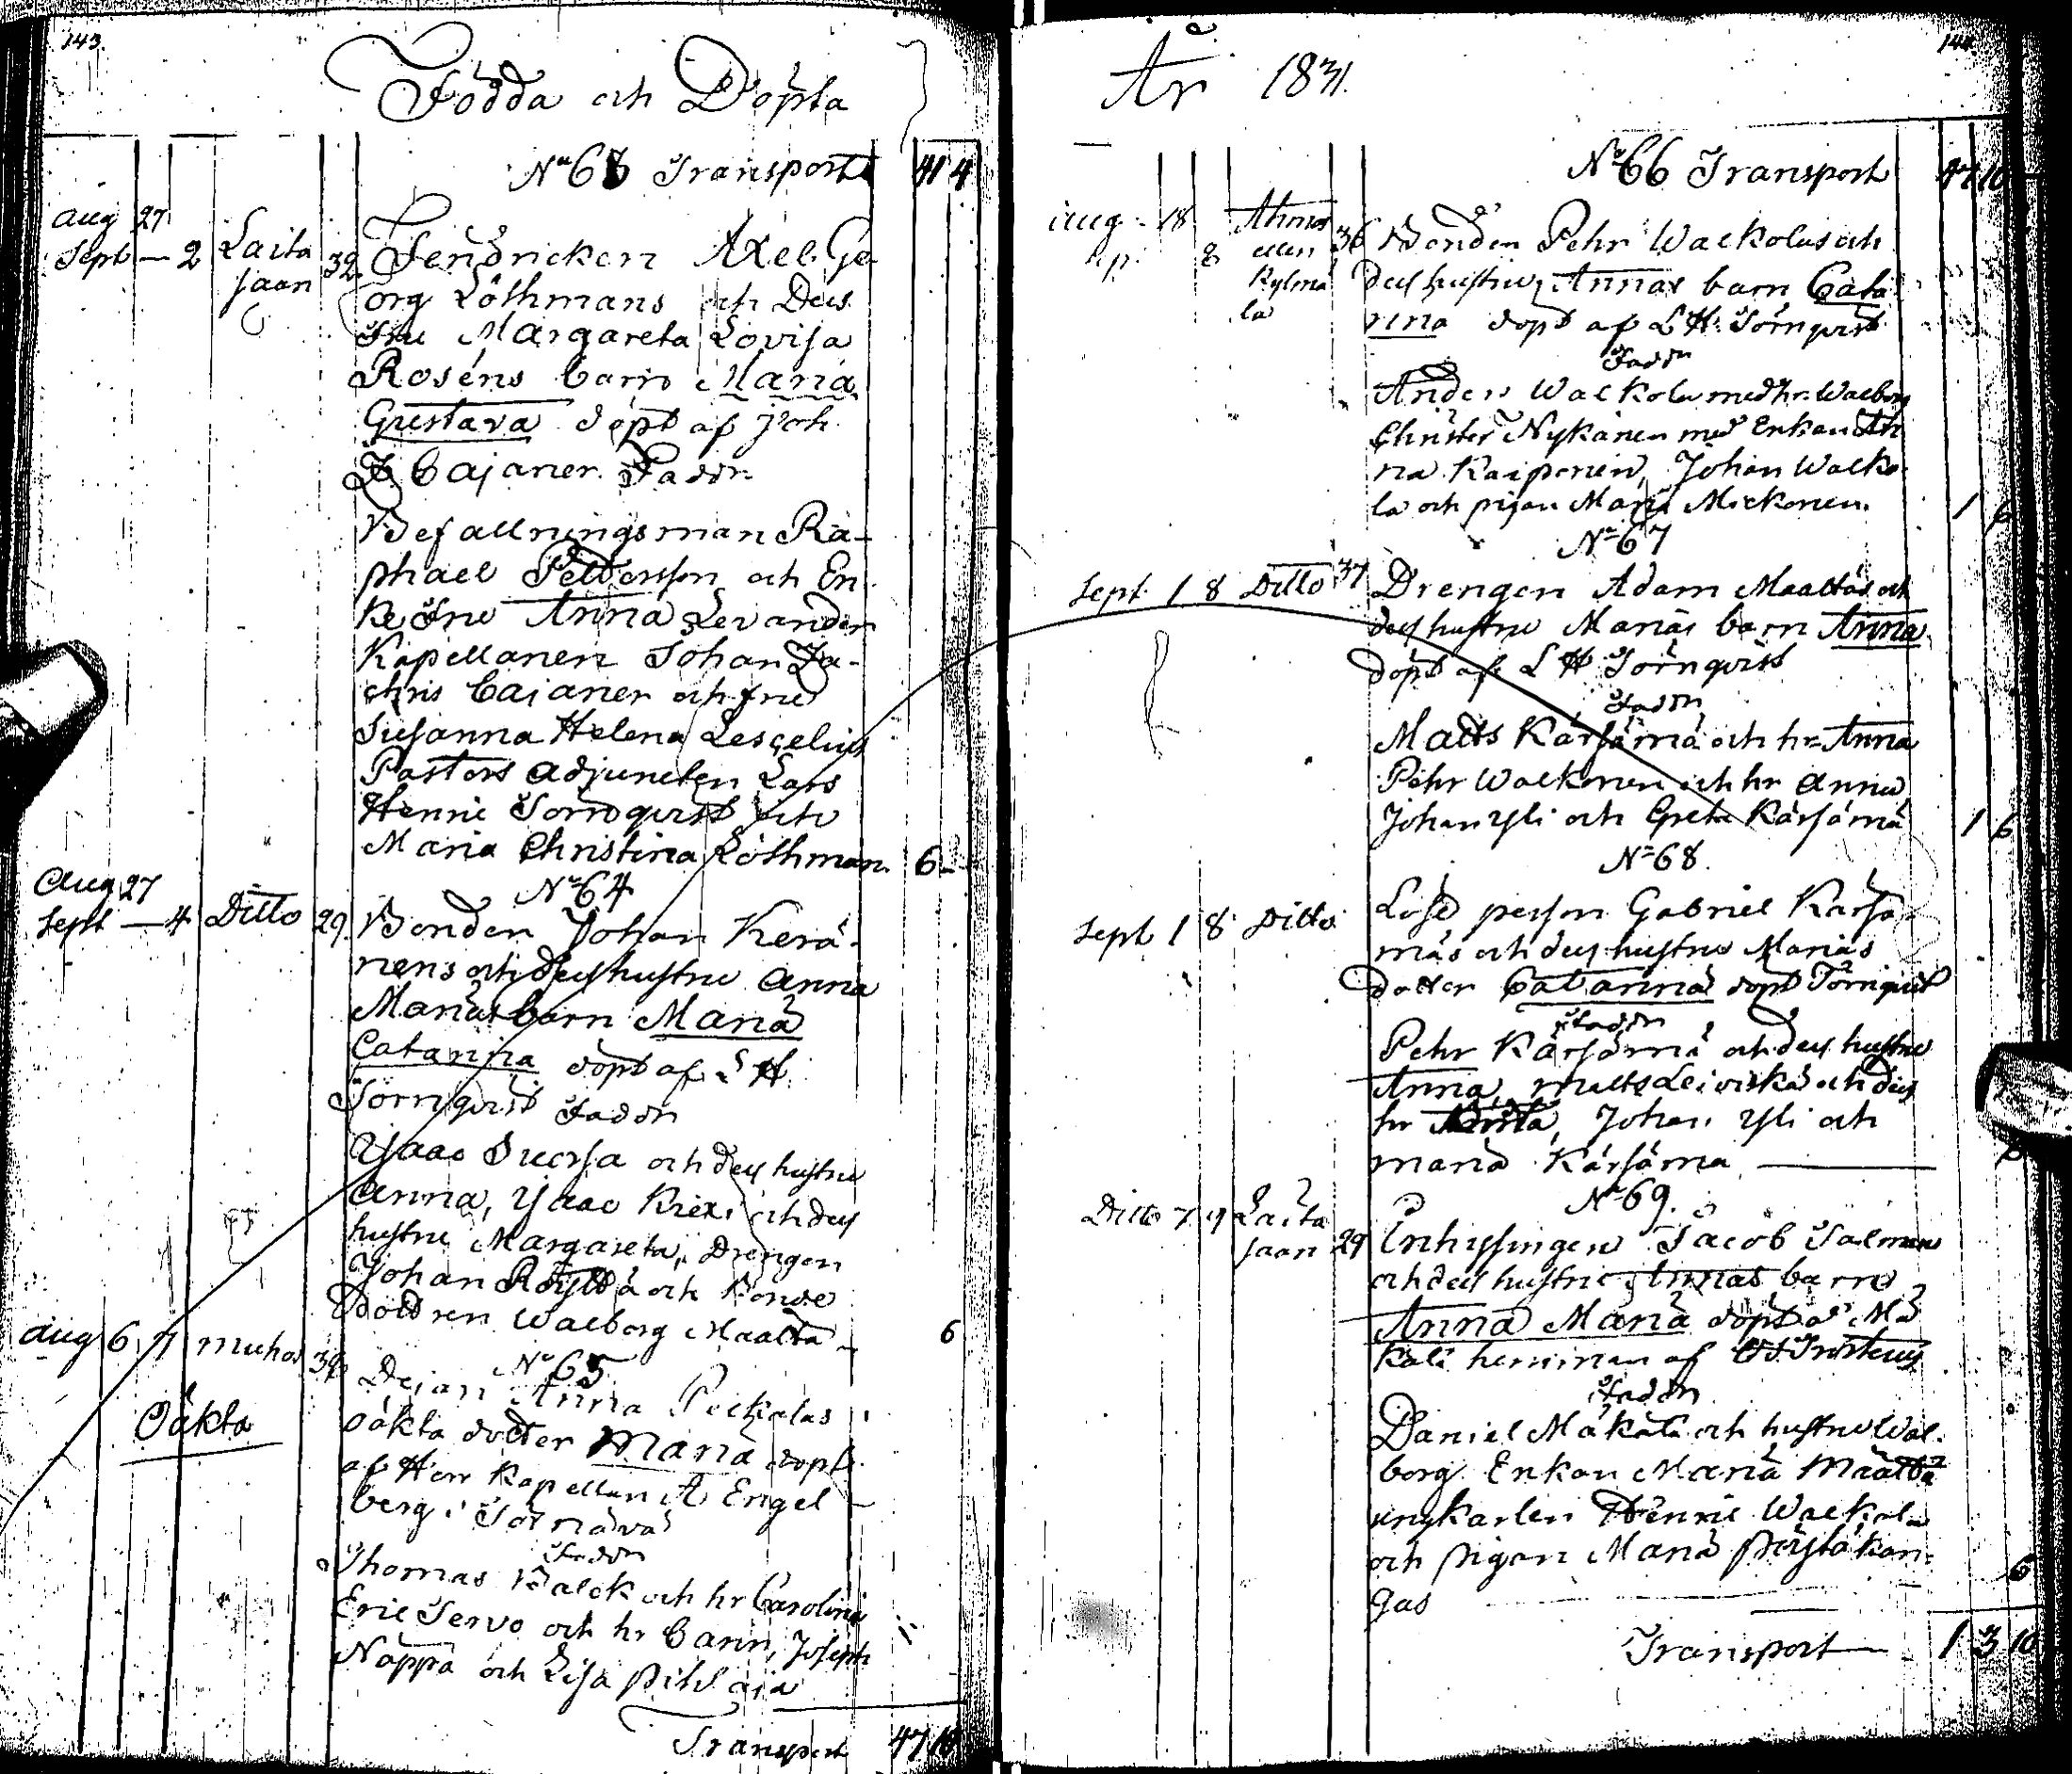 143.
Födda och Döpta
No 63 Transport 41 4
Aug 27
Sept — 2 Laitasaari 32 Fendricken Axel Ge-
org Löthmans och Dess
Fru Margareta Lovisa
Roséns barn Maria
Gustava döpt af Joh.
Z Cajaner. Faddr.
Befallningsman Ra-
phael Peldersson och En-
ke Fru Anna Levander
Kapellanen Johan Za-
chris Cajaner och fru
Susanna Helena Lescelius
Pastors adjuncten Lars
Henric Törnqvist och
Maria Christina Löthman 6 –
No 64
Aug 27
Sept — 4 Ditto 29. Bonden Johan Kerä-
nens och dess hustru Anna
Marias barn Maria
Catarina döpt af L H.
Törnqvist Faddr
Isaac Suorsa och dess hustru
Anna, Isaac Kriexi och dess
hustru Margareta, Drengen
Johan Röyttä och Bonde
dottren Walborg Maalta 6
No 65
Aug 6 7 Muhos 39 Dejan Anna Peckalas
Oäkta
oäkta dotter Maria döpt
af Herr Kapellan A Engel-
berg i
Faddr
Thomas Balck och hr Carolina
Eric Servo och hr Carin, Joseph
Näppä och Lisa Pihlaja
Transport 47 10
144.
År 1831.
No 66 Transport 47 10
Aug 18 8 Ahmas eller Kylmälä 36 Bonden Pehr Walkolas och
dess hustru Annas barn Cata-
rina döpt af L H. Törnqvist
Faddr
Anders Walkola med hr. Walborg
Christer Nykänen med Enkan An
na Kaiponen, Johan Walko-
la och pigan Maria Mickonen. 1 6
No 67
Sept. 1 8 Ditto 37 Drengen Adam Maaltas och
dess hustru Marias barn Anna
döpt af L H Törnqvist
Faddr
Matts Kärsämä och hr Anna
Pehr Walkonen och hr Anna
Johan Yli och Greta Kärsämä 1 6
No 68.
Sept 1 8 Ditto Löse person Gabriel Kärsä-
mäs och dess hustru Marias
dotter Catarina döpt Törnqvist
Faddr
Pehr Kärsämä och dess hustru
Anna, Matts Leiviskä och dess
hr Brita, Johan Yli och
Maria Kärsämä
No 69.
Ditto 7 9 Laitasaari 29 Inhysingen Jacob Salmen
och dess hustru Annas barn
Anna Maria döpt å Mä
kälä hemman af
Faddr
Daniel Mäkälä och hustru Wal-
borg. Enkan Maria Määttä
ynglkarlen Henric Walkola
och pigan Maria Pöystäkan-
gas 6
Transport 1 3 10